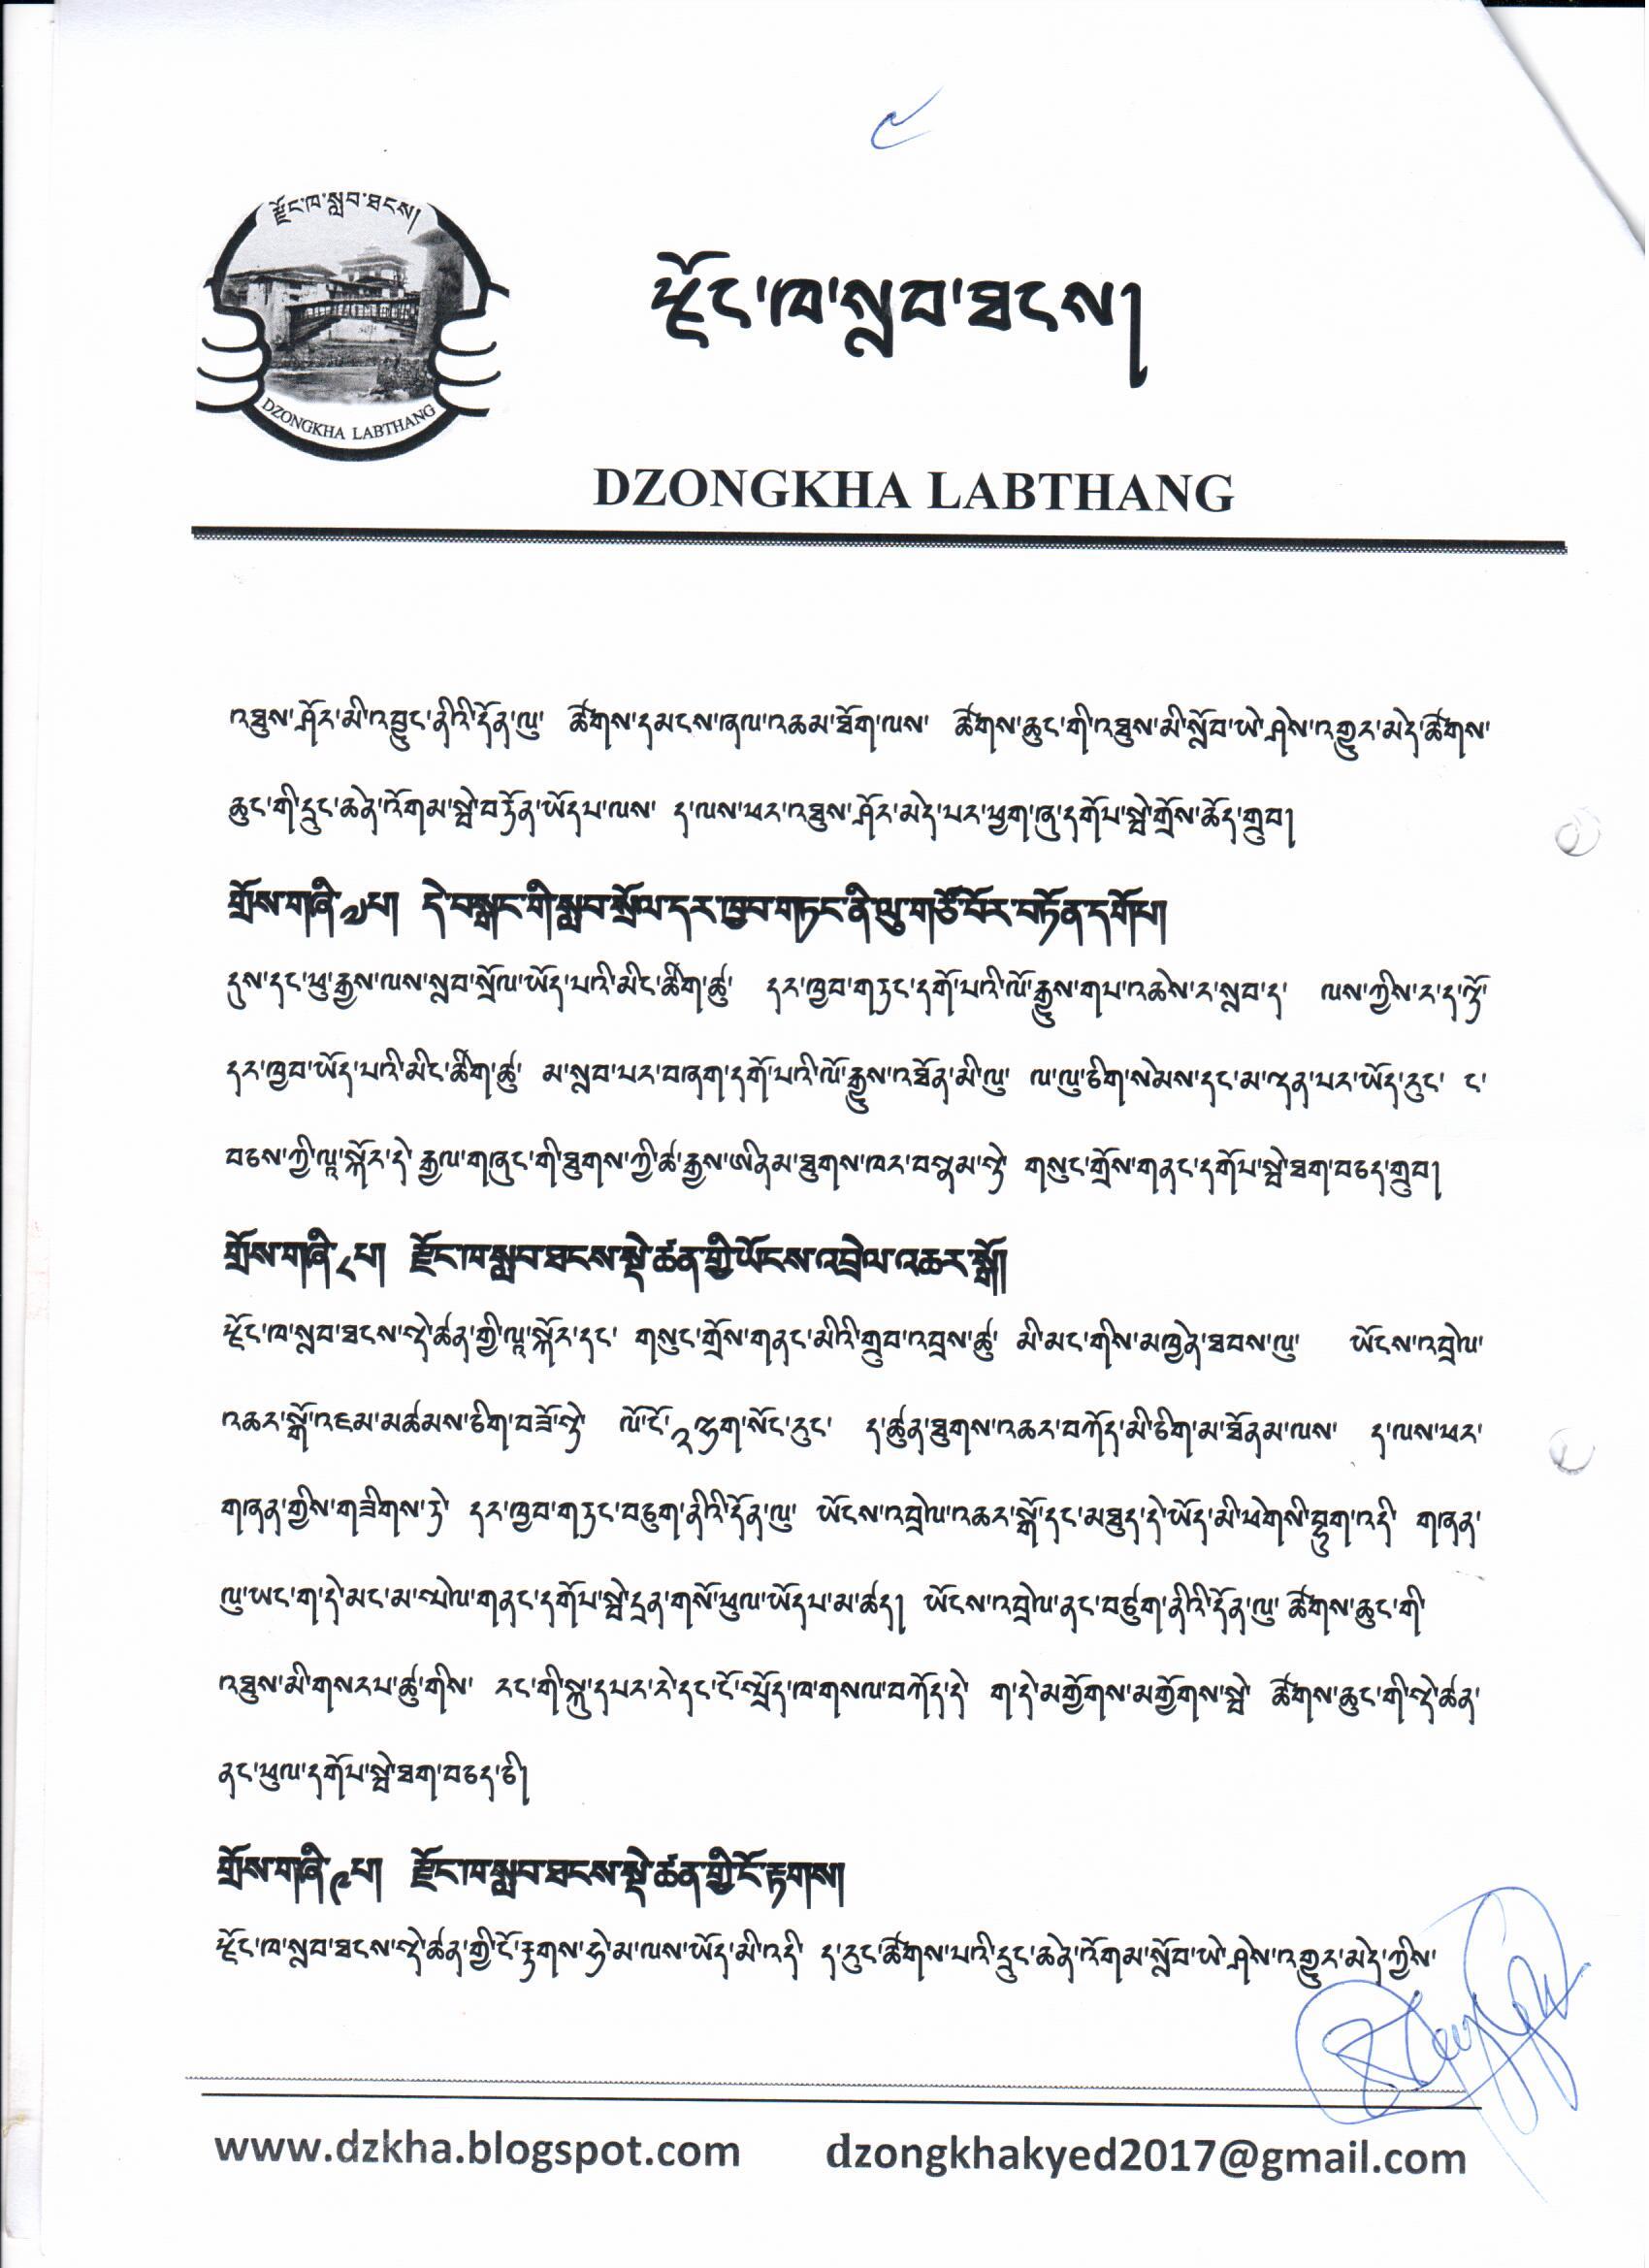 ༥
རྫོང་ཁ་སླབ་ཐངས།
DZONGKHA LABTHANG
རྫོང་ཁ་སླབ་ཐངས།
DZONGKHA LABTHANG
འཐུས་ཤོར་མི་འབྱུང་ནིའི་དོན་ལུ་ ཚོགས་དམངས་ཞལ་འཆམ་ཐོག་ལས་ ཚོགས་ཆུང་གི་འཐུས་མི་སློབ་ཡེ་ཤེས་འགྱུར་མེད་ཚོགས་
ཆུང་གི་དྲུང་ཆེན་འོགམ་སྦེ་བཏོན་ཡོདཔ་ལས་ ད་ལས་ཕར་འཐུས་ཤོར་མེད་པར་ཕྱག་ཞུ་དགོཔ་སྦེ་གྲོས་ཆོད་གྲུབ།
གྲོས་གཞི་༧པ། དེ་བསྒང་གི་སླབ་སྲོལ་དར་ཁྱབ་གཏང་ནི་ལུ་གཙོ་བོར་བཏོན་དགོཔ།
དུས་དང་ཕུ་རྒྱས་ལས་སླབ་སྲོལ་ཡོད་པའི་མིང་ཚིག་ཚུ་ དར་ཁྱབ་གཏང་དགོ་པའི་ལོ་རྒྱུས་གཔ་འཆེས་ར་སླབ་ད་ ལས་ཀྱིས་ར་ད་ལྟོ་
དར་ཁྱབ་ཡོད་པའི་མིང་ཚིག་ཚུ་ མ་སླབ་པར་བཞག་དགོ་པའི་ལོ་རྒྱུས་འཐོན་མི་ལུ་ ལ་ལུ་ཅིག་སེམས་དང་མ་ལྡན་པར་ཡོད་རུང་ ང་
བཅས་ཀྱི་ལྟ་སྐོར་དེ་ རྒྱལ་གཞུང་གི་ཐུགས་ཀྱི་ཚ་རྒྱས་ཨིནམ་ཐུགས་ཁར་བསྣམ་སྟེ་ གསུང་གྲོས་གནང་དགོཔ་སྦེ་ཐག་བཅད་གྲུབ།
གྲོས་གཞི་༨པ། རྫོང་ཁ་སླབ་ཐངས་སྡེ་ཚན་གྱི་ཡོངས་འབྲེལ་འཆར་སྒོ།
རྫོང་ཁ་སླབ་ཐངས་སྡེ་ཚན་གྱི་ལྟ་སྐོར་དང་ གསུང་གྲོས་གནང་མིའི་གྲུབ་འབྲས་ཚུ་ མི་མང་གིས་མཁྱེན་ཐབས་ལུ་ ཡོངས་འབྲེལ་
འཆར་སྒོ་འཇམ་མཚམས་ཅིག་བཟོ་སྟེ་ ལོ་ངོ་༢་ལྷག་སོང་རུང་ ད་ཚུན་ཐུགས་འཆར་བཀོད་མི་ཅིག་མ་ཐོནམ་ལས་ ད་ལས་ཕར་
གཞན་གྱིས་གཟིགས་ཏེ་ དར་ཁྱབ་གཏང་བཅུག་ནིའི་དོན་ལུ་ ཡོངས་འབྲེལ་འཆར་སྒོ་དང་མཐུད་དེ་ཡོད་མི་ཕེགསི་བྷུག་འདི་ གཞན་
ལུ་ཡང་ག་དེ་མང་མ་སྤེལ་གནང་དགོཔ་སྦེ་དྲན་གསོ་ཕུལ་ཡོདཔ་མ་ཚད། ཡོངས་འབྲེལ་ནང་བཙུག་ནིའི་དོན་ལུ་ ཚོགས་ཆུང་གི་
འཐུས་མི་གསརཔ་ཚུ་གིས་ རང་གི་སྐུ་དཔར་རེ་དང་ངོ་སྤྲོད་ཁ་གསལ་བཀོད་དེ་ ག་དེ་མགྱོགས་མགྱོགས་སྦེ་ ཚོགས་ཆུང་གི་སྡེ་ཚན་
ནང་ཕུལ་དགོཔ་སྦེ་ཐག་བཅད་ཅི།
གྲོས་གཞི་༩པ། རྫོང་ཁ་སླབ་ཐངས་སྡེ་ཚན་གྱི་ངོ་རྟགས།
རྫོང་ཁ་སླབ་ཐངས་སྡེ་ཚན་གྱི་ངོ་རྟགས་ཧེ་མ་ལས་ཡོད་མི་འདི་ ད་རུང་ཚོགས་པའི་དྲུང་ཆེན་འོགམ་སློབ་ཡེ་ཤེས་འགྱུར་མེད་ཀྱིས་
www.dzkha.blogspot.com dzongkhakyed2017@gmail.com